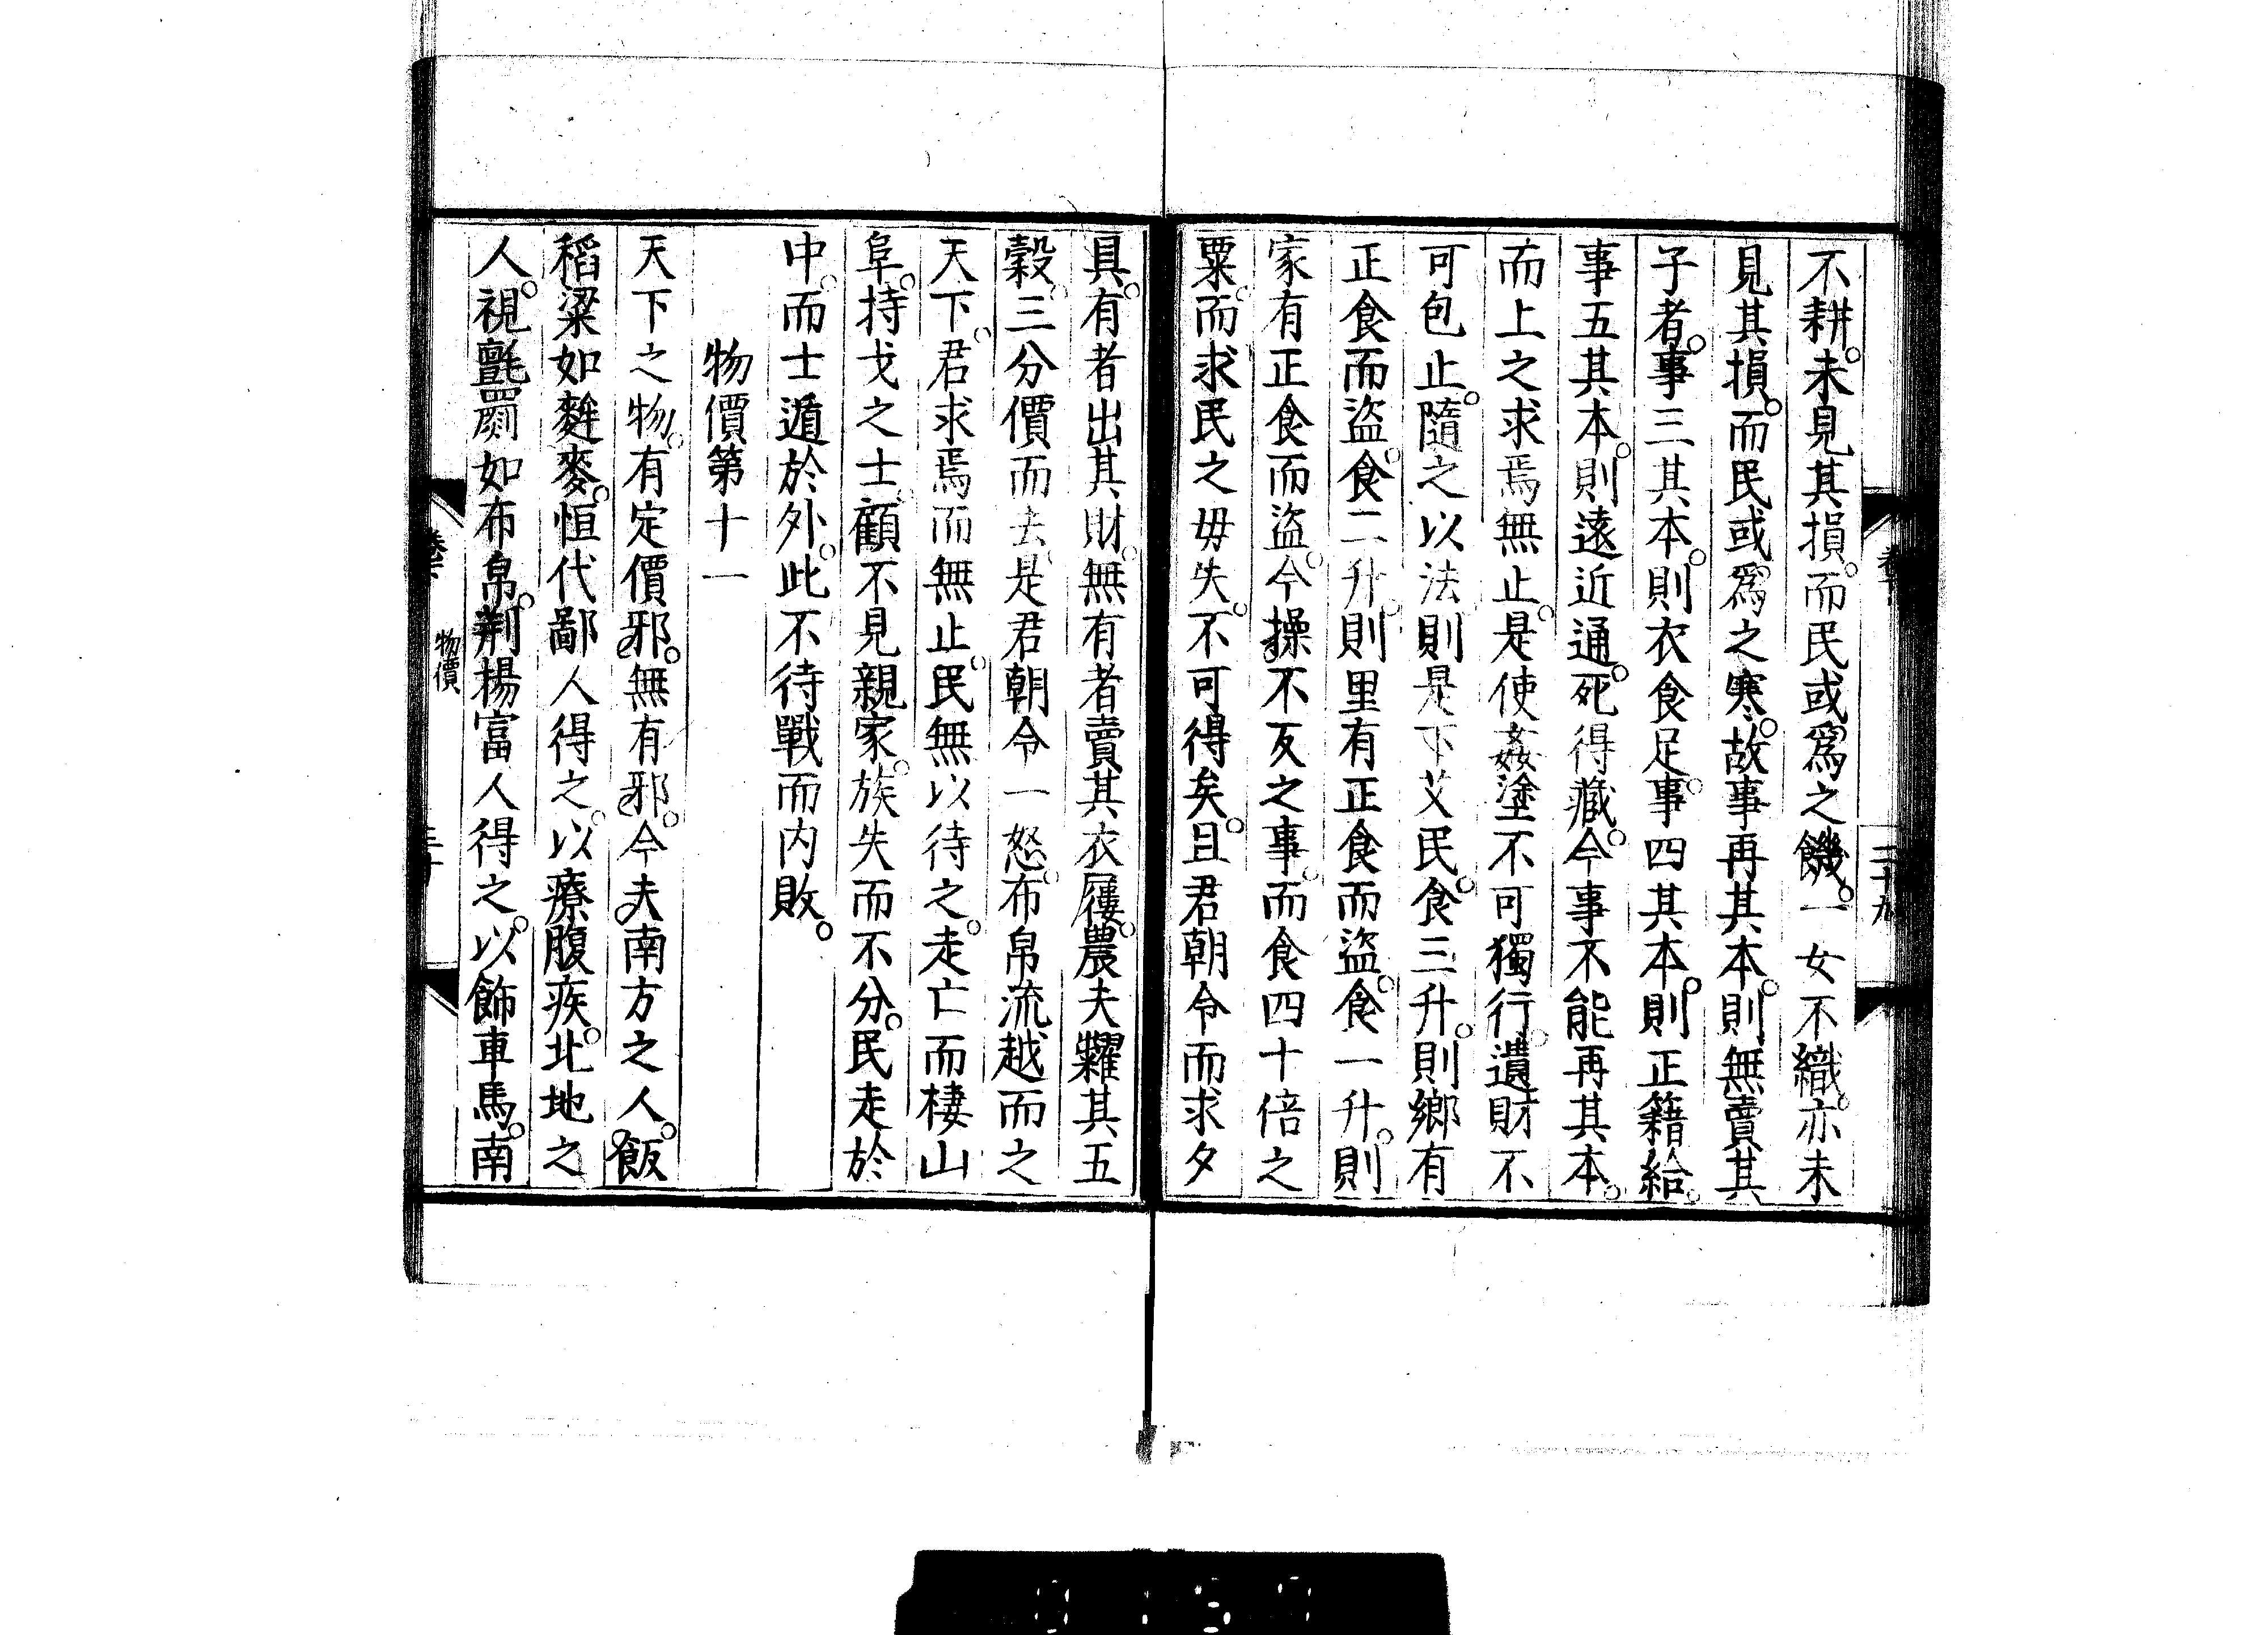 不耕。未見其損。而民或爲之饑。一女不織。亦未
見其損。而民或爲之寒。故事再其本。則無賣其
子者。事三其本。則衣食足。事四其本。則正籍給。
事五其本。則遠近通。死得藏。今事不能再其本。
而上之求焉無止。是使姦塗不可獨行。遺財不
可包止。隨之以法。則是下艾民。食三升。則鄉有
正食而盜。食二升。則里有正食而盜。食一升。則
家有正食而盜。今操不反之事。而食四十倍之
粟。而求民之毋失。不可得矣。且君朝令而求夕
具。有者出其財。無有者賣其衣屨。農夫糶其五
穀。三分價而去。是君朝令一怒。布帛流越而之
天下。君求焉而無止。民無以待之。走亡而棲山
阜。持戈之士。顧不見親家。族失而不分。民走於
中。而士遁於外。此不待戰而内敗。
物價第十一
天下之物。有定價邪。無有邪。今夫南方之人。飯
稻粱如麰麥。恒代鄙人得之。以療腹疾。北地之
人。視氈罽如布帛。荊楊富人得之。以飾車馬。南
物價
二十九